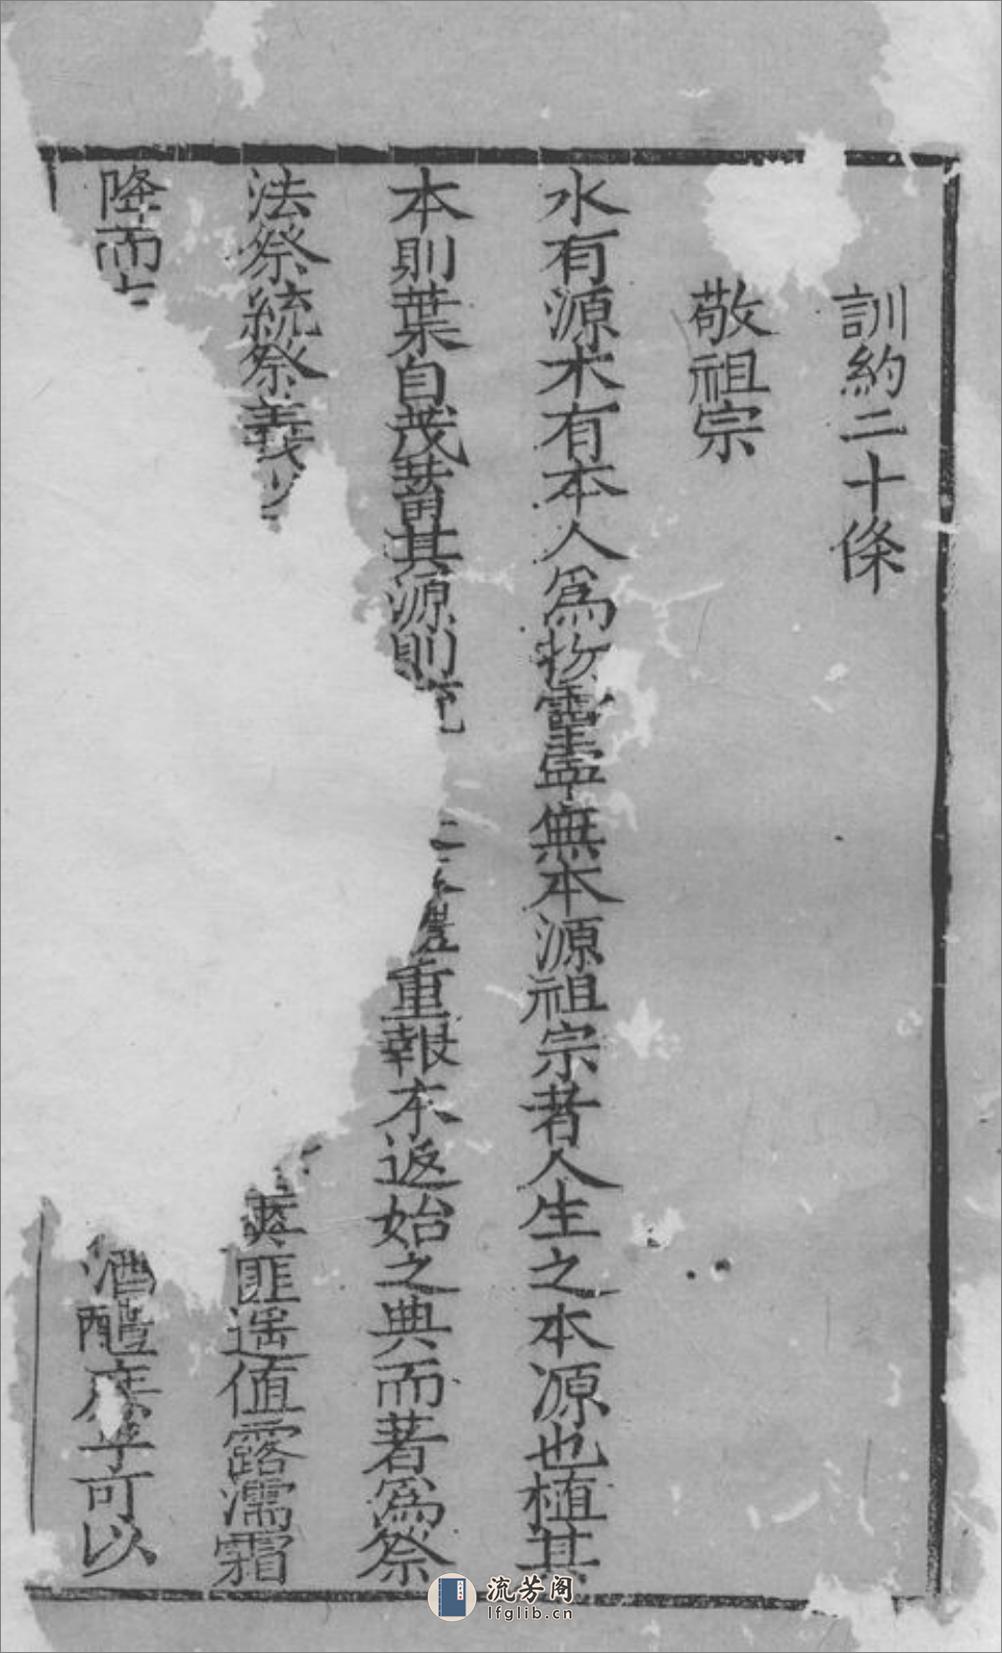 訓約二十條
敬祖宗
水有源木有本人爲物靈寧無本源祖宗者人生之本源也植其
本則葉自茂蓄其源則 重報本返始之典而著爲祭
法祭統祭義 匪遥值露濡霜
降而 酒醴庶乎可以
流芳阁
lfglib.cn